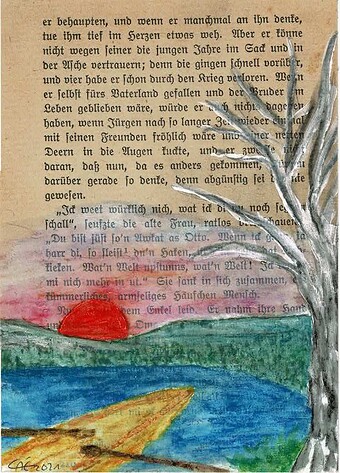 er behaupten, und wenn er manchmal an ihn denke,
tue ihm tief im Herzen etwas weh. Aber er könne
nicht wegen seiner die jungen Jahre im Sack und in
der Asche vertrauern; denn die gingen schnell vorüber,
und vier habe er schon durch den Krieg verloren. Wenn
er selbst fürs Vaterland gefallen und der Bruder am
Leben geblieben wäre, würde er auch nichts dagegen
haben, wenn Jürgen nach so langer Zeit wieder einmal
mit seinen Freunden fröhlich wäre und einer netten
Deern in die Augen kuckte, und er zweifle nicht
daran, daß nun, da es anders gekommen,
darüber gerade so denke, denn abgünstig sei
gewesen.
„Ick weet würklich nich, wat ick di nu noch seggen
schall“, seufzte die alte Frau, ratlos
„Du bist süst so'n Awkat as Otto. Wenn ick
harr di, so
kieken. Wat'n Welt upstunns, wat'n Welt! Ick
mi nich mehr in ut.“ Sie sank in sich zusammen, e
kümmerliches, armseliges Häufchen Mensch.
dem Enkel leid. Er nahm ihre Hand
Om
CAE 2021